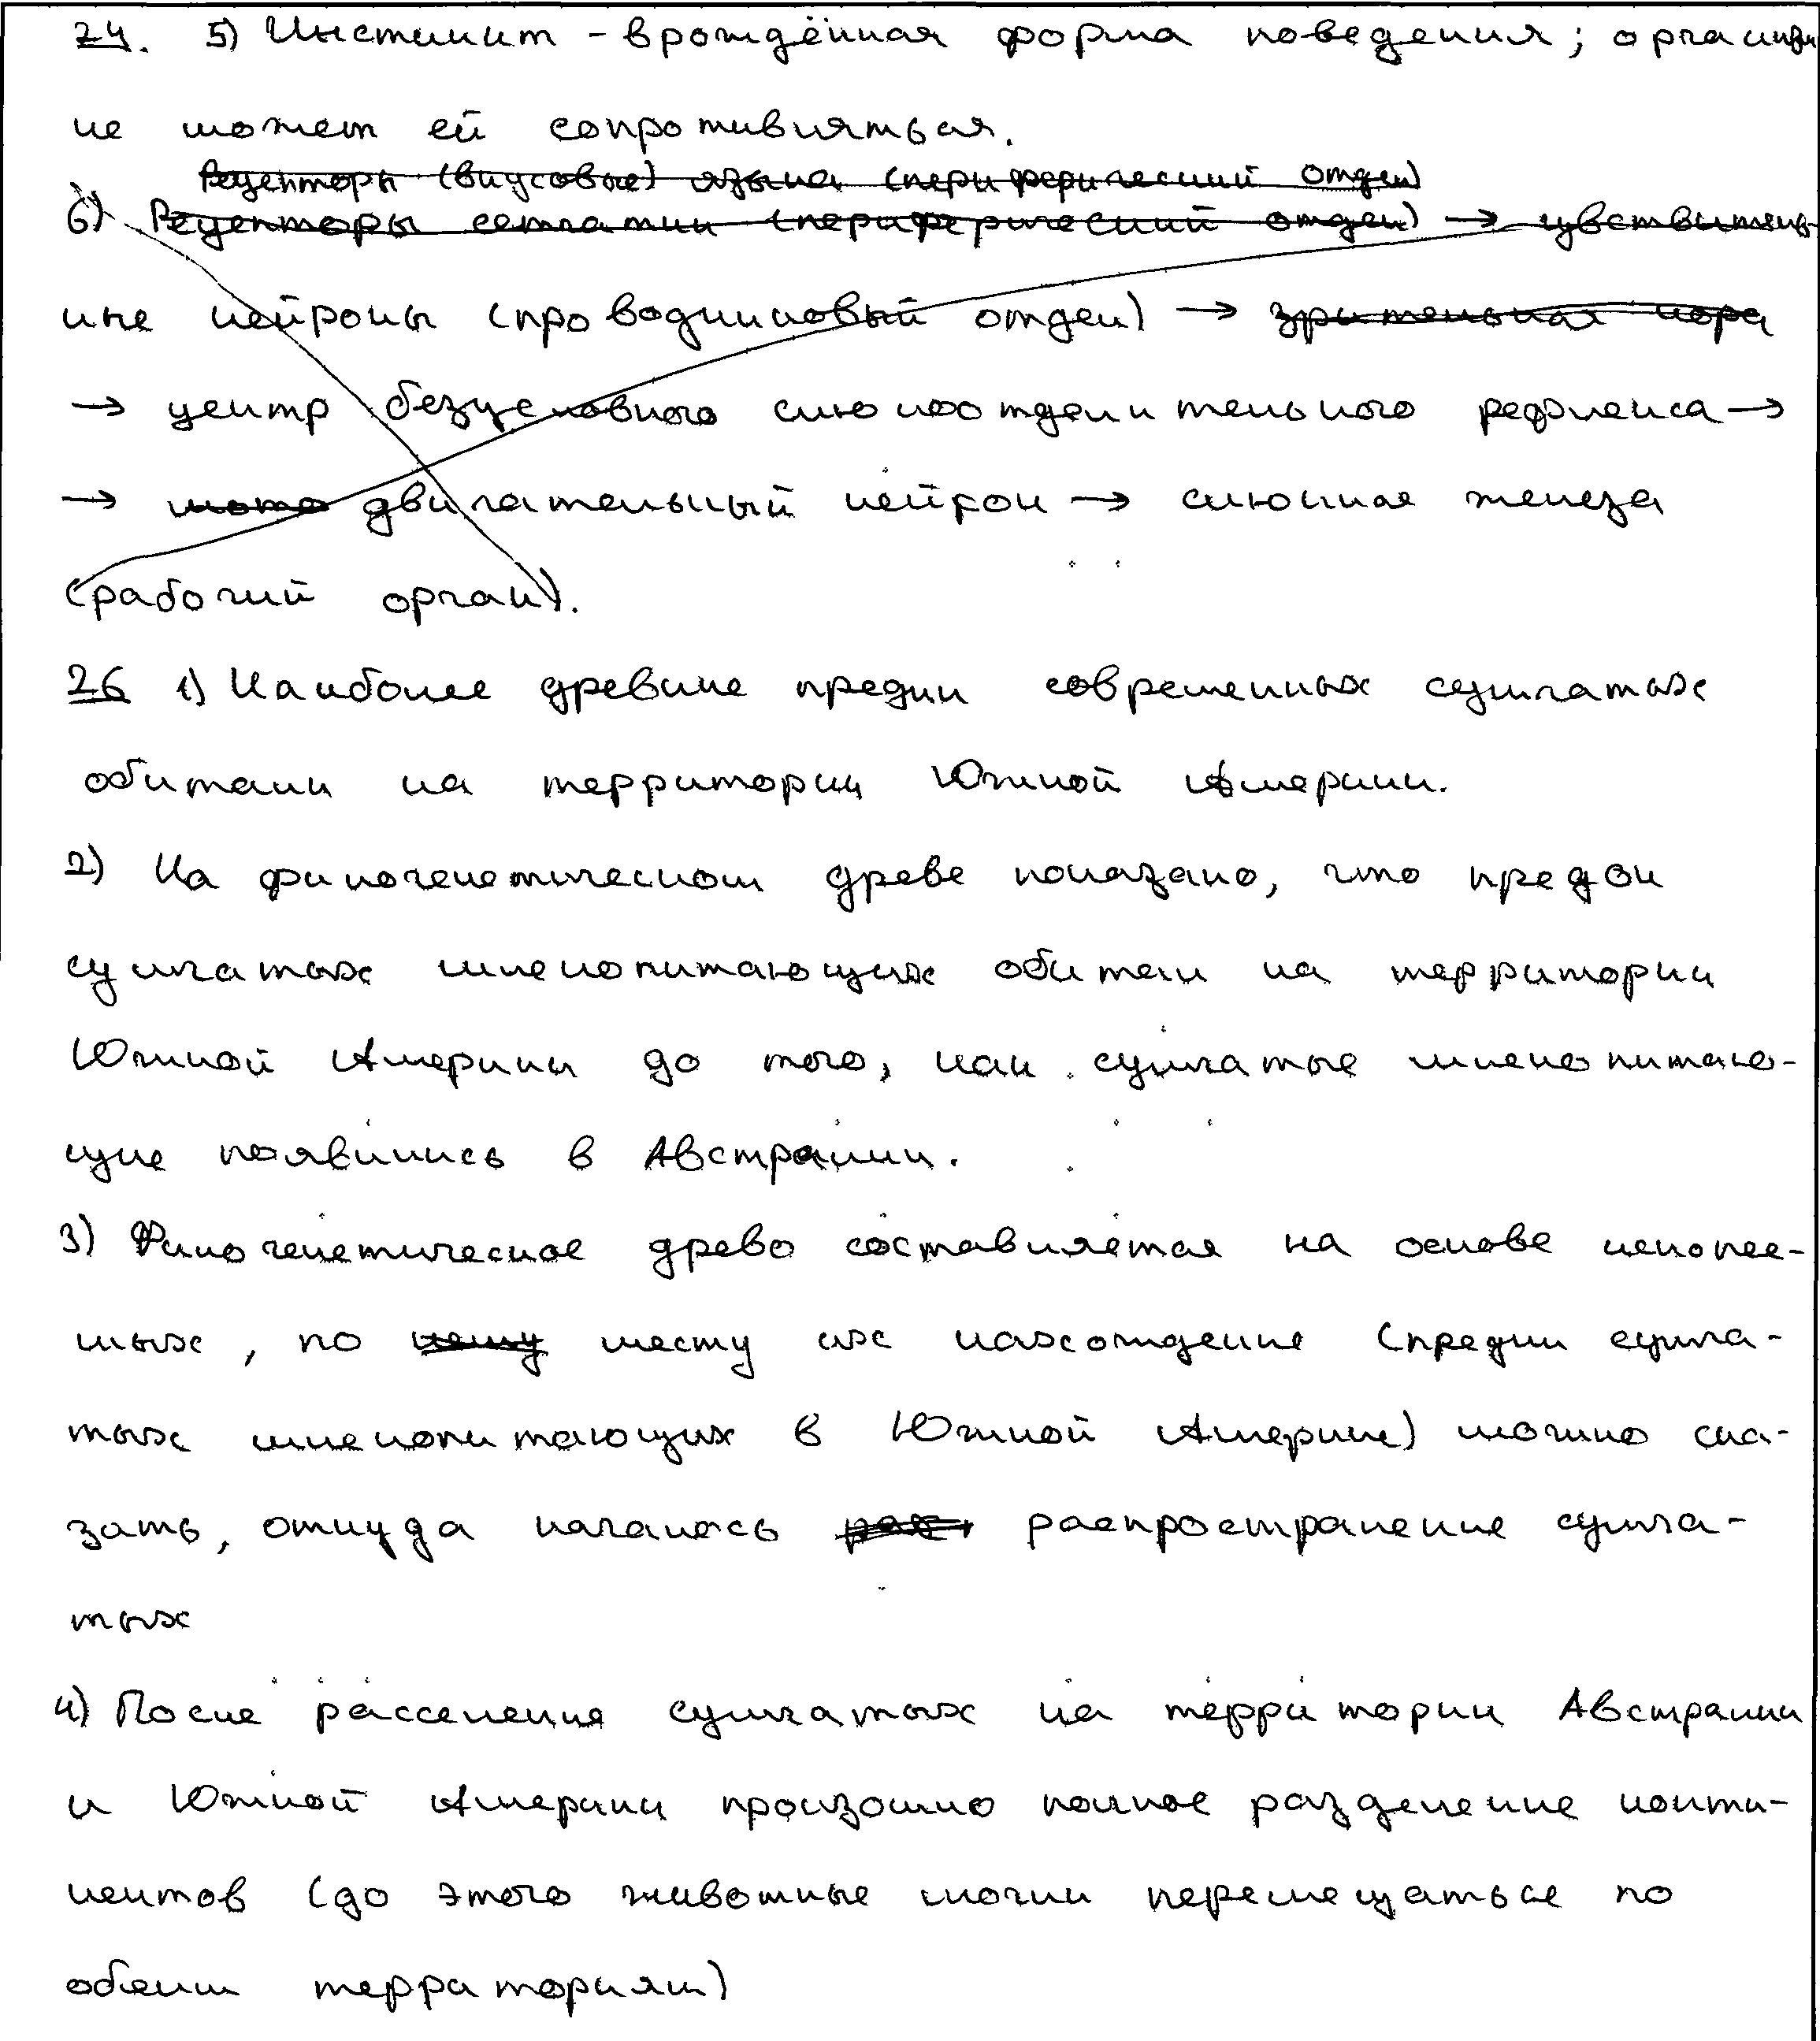 24. 5) Инстинкт - врождённая форма поведения; организм
не может ей сопротивляться.
Рецепторы (вкусовые) языка (периферический отдел)
6) Рецепторы сетчатки (периферический отдел) → чувствитель-
ные нейроны (проводниковый отдел) → зрительная кора
→ центр безусловного слюноотделительного рефлекса →
→ мото двигательный нейрон → слюнная железа
(рабочий орган).
26 1) Наиболее древние предки современных сумчатых
обитали на территории Южной Америки.
2) На филогенетическом древе показано, что предок
сумчатых млекопитающих обитал на территории
Южной Америки до того, как сумчатые млекопитаю-
щие появились в Австралии.
3) Филогенетическое древо составляется на основе ископае-
мых, по месту их нахождение (предки сумча-
тых млекопитающих в Южной Америке) можно ска-
зать, откуда началось распространение сумча-
тых
4) После расселения сумчатых на территории Австралии
и Южной Америки произошло полное разделение конти-
нентов (до этого животные могли перемещаться по
обеим территориям)